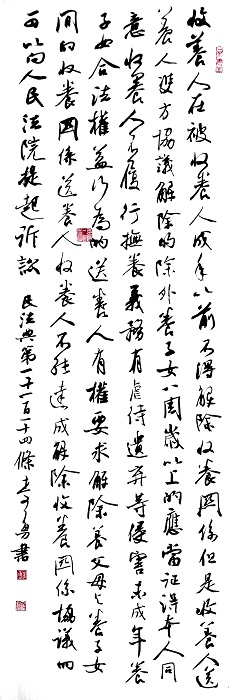 收養人在被收養人成年以前不得解除收養関係但是收養人送
養人雙方協議解除的除外養子女八周歲以上的應當证得本人同
意收養人不履行撫養義務有虐待遺弃等侵害未成年養
子女合法權益行為的送養人有權要求解除養父母与養子女
間的收養関係送養人收養人不能達成解除收養関係協議的
可以向人民法院提起訴訟
民法典第一千一百一十四條
書